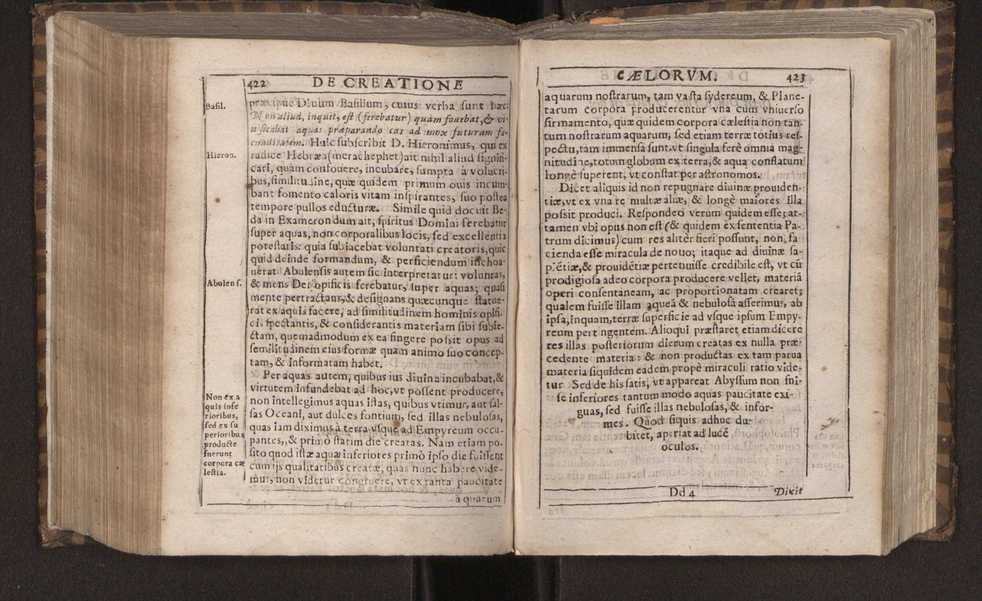 422 DE CREATIONE
Basil.
præcipuè Diuum Basilium, cuius verba sunt hæc
Non aliud, inquit, est (ferebatur) quam fouebat, & vi
uificabat aquas præparando eas ad mox futuram fœ
cunditatem. Huic subscribit D. Hieronimus, qui ex
Hieron.
radice Hebræa (merachephet) ait nihil aliud signifi-
cari, quàm confouere, incubare, sumpta à volucri-
bus, similitudine, quæ quidem primùm ouis incum-
bant fomento caloris vitam inspirantes, suo postea
tempore pullos educturæ. Simile quid docuit Be-
da in Examerondum ait, spiritus Domini ferebatur
super aquas, non corporalibus locis, sed excellentia
potestatis: quia subiacebat voluntati creatoris, quic
quid deinde formandum, & perficiendum inchoa-
uerat Abulensis autem sic interpretatur: voluntas,
Abulens.
& mens Dei opificis ferebatur, super aquas; quasi
mente pertractans, & designans quæcunque statue-
rat ex aquis facere, ad similitudinem hominis opifi-
ci, spectantis, & considerantis materiam sibi subie-
ctam, quemadmodum ex ea fingere possit opus ad
semilitudinem eius formæ quam animo suo concep-
tam, & informatam habet.
Per aquas autem, quibus ius diuina incubabat, &
virtutem infundebat ad hoc, vt possent producere,
Non ex a
quis infe
rioribus,
sed ex su
perioribus
productæ
fuerunt
corpora cæ
lestia.
non intellegimus aquas istas, quibus vtimur, aut sal-
sas Oceani, aut dulces fontium, sed illas nebulosas,
quas iam diximus à terra vsque ad Empyreum occu-
pantes, & primò statim die creatas. Nam etiam po-
sito quod istæ aquæ inferiores primò ipso die fuissent
cum ijs qualitatibus creatæ, quas nunc habere vide-
mus, non videtur congruere, vt ex tanta paucitate
aquarum
CÆLORVM. 423
aquarum nostrarum, tam vasta sydereum, & Plane-
tarum corpora producerentur vna cum vniuerso
firmamento, quæ quidem corpora cælestia non tan-
tum nostrarum aquarum, sed etiam terræ totius res-
pectu, tam immensa sunt, vt singula ferè omnia mag-
nitudine, totum globum ex terra, & aqua conflatum
longè superent, vt constat per astronomos.
Dicet aliquis id non repugnare diuinæ prouiden-
tiæ, vt ex vna re multæ aliæ, & longè maiores illa
possit produci. Respondeo verum quidem esse; at-
tamen vbi opus non est (& quidem ex sententia Pa-
trum dicimus) cum res aliter fieri possunt, non, fa
cienda esse miracula de nouo; itaque ad diuinæ sa-
piẽtiæ, & prouidẽtiæ pertenuisse credibile est, vt cũ
prodigiosa adeo corpora producere vellet, materiã
operi consentaneam, ac proportionatam crearet;
qualem fuisse illam aqueã & nebulosã asserimus, ab
ipsa, inquam, terræ superficie ad vsque ipsum Empy-
reum pertingentem. Alioqui præstaret etiam dicere
res illas posteriorum dierum creatas ex nulla præ-
cedente materia: & non productas ex tam parua
materia siquidem eadem propè miraculi ratio vide-
tur Sed de his satis, vt appareat Abyssum non fui-
se inferiores tantum modo aquas paucitate exi-
guas, sed fuisse illas nebulosas, & infor-
mes. Quòd siquis adhuc du-
bitet, aperiat ad lucẽ
oculos.
Dd 4 Dixit